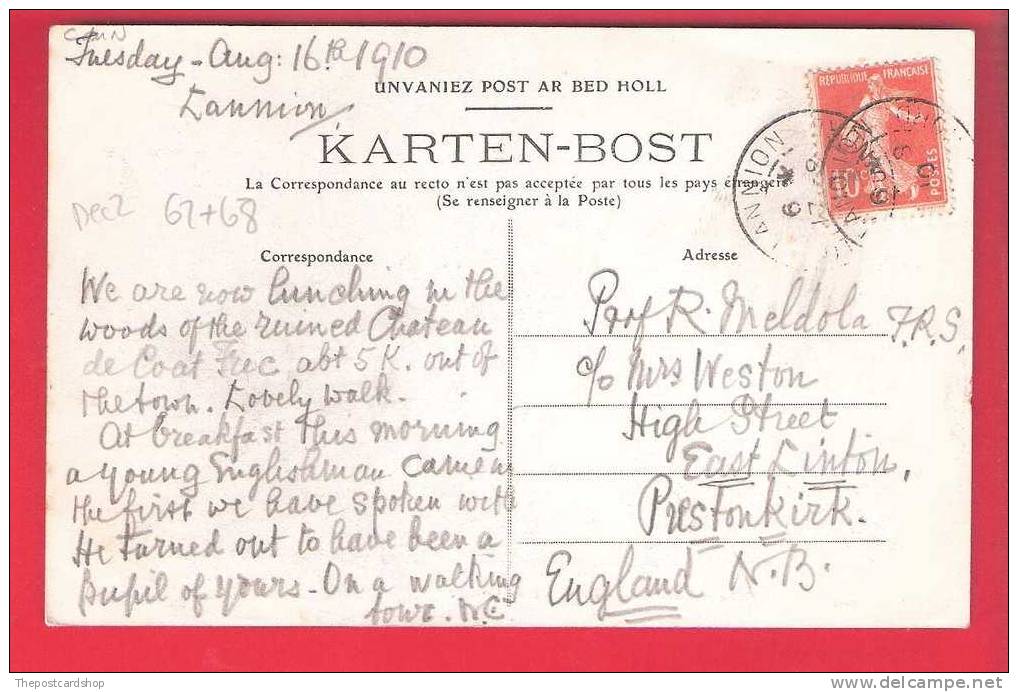 Tuesday - Aug: 16th 1910
Lannion
UNVANIEZ POST AR BED HOLL
KARTEN-BOST
La Correspondance au recto n'est pas acceptée par tous les pays étrangers
(Se renseigner à la Poste)
REPUBLIQUE FRANÇAISE
10 c
POSTES
LANNION
LANNION
Dec2 67+68
Correspondance
We are now lunching in the
woods of the ruined Chateau
de Coat Frec abt 5 K. out of
the town. Lovely walk.
At breakfast this morning
a young Englishman came in
the first we have spoken with
He turned out to have been a
pupil of yours - On a walking
tour.
Adresse
Prof R. Meldola F.R.S.
c/o Mrs Weston
High Street
East Linton,
Prestonkirk.
England N.B.
© Thepostcardshop
www.delcampe.net